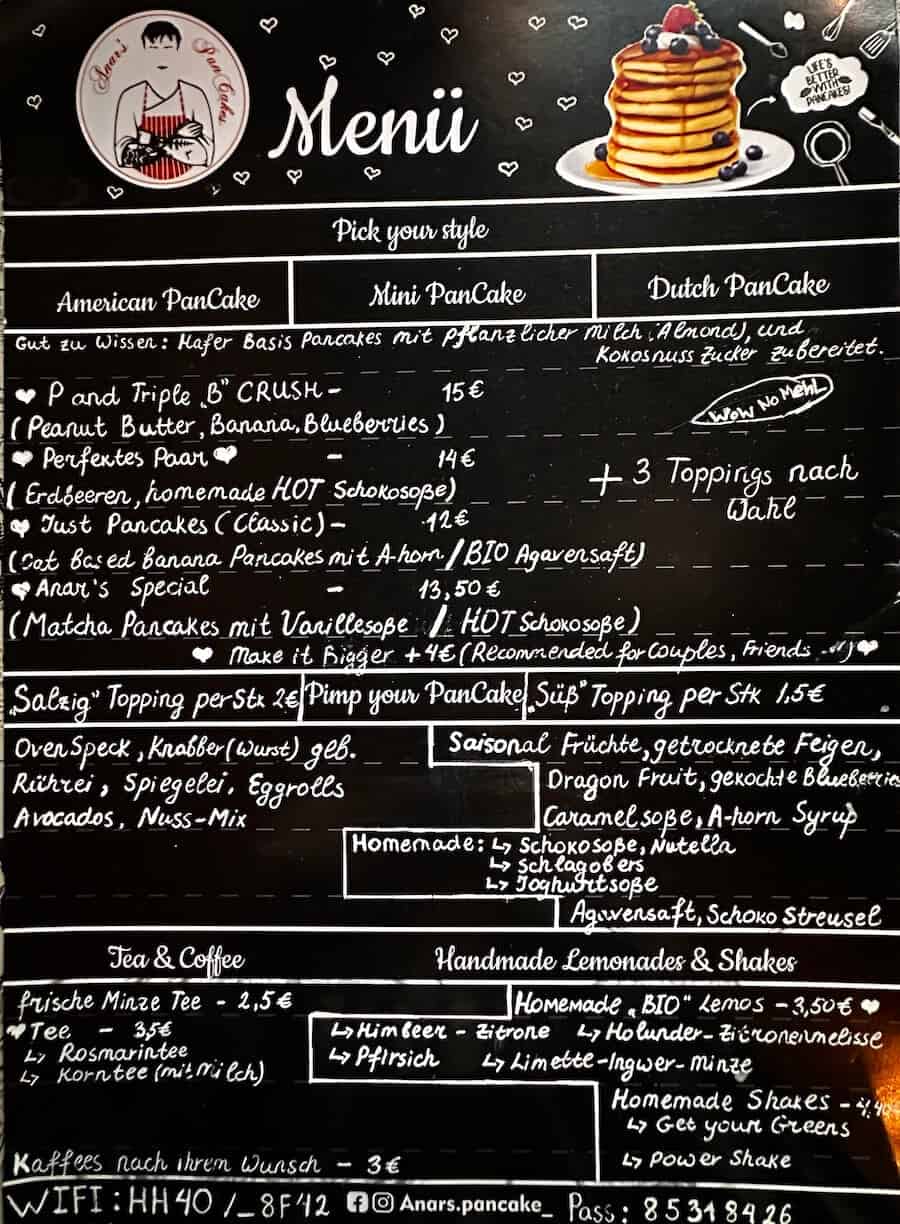 Anar's PanCakes
Menü
LIFE'S
BETTER
WITH
PANCAKES!
Pick your style
American PanCake
Mini PanCake
Dutch PanCake
Gut zu Wissen: Hafer Basis Pancakes mit pflanzlicher Milch (Almond), und
Kokosnuss Zucker zubereitet.
P and Triple „B" CRUSH - 15€
Wow No Mehl
(Peanut Butter, Banana, Blueberries)
Perfektes Paar - 14€
+ 3 Toppings nach
Wahl
(Erdbeeren, homemade HOT Schokosoße)
Just Pancakes (Classic) - 12€
(Oat Based Banana Pancakes mit A-horn / BIO Agavensaft)
Anar's Special - 13,50€
(Matcha Pancakes mit Vanillesoße / HOT Schokosoße)
Make it Bigger +4€ (Recommended for Couples, Friends ...)
„Salzig" Topping per Stk 2€
Pimp your PanCake
„Süß" Topping per Stk 1,5€
Oven Speck, Knabber (Wurst) geb.
Rührei, Spiegelei, Eggrolls
Avocados, Nuss-Mix
Saisonal Früchte, getrocknete Feigen,
Dragon Fruit, gekochte Blueberries
Caramelsoße, A-horn Syrup
Homemade: ↳ Schokosoße, Nutella
↳ Schlagobers
↳ Joghurtsoße
Agavensaft, Schoko Streusel
Tea & Coffee
Handmade Lemonades & Shakes
frische Minze Tee - 2,5€
Tee - 3,5€
↳ Rosmarintee
↳ Korntee (mit Milch)
Kaffees nach ihrem Wunsch - 3€
Homemade „BIO" Lemos - 3,50€
↳ Himbeer - Zitrone ↳ Holunder-Zitronenmelisse
↳ Pfirsich ↳ Limette-Ingwer-Minze
Homemade Shakes - 4,40
↳ Get your Greens
↳ Power Shake
WIFI: HH40/_8F42 Anars.pancake_ Pass: 85318426